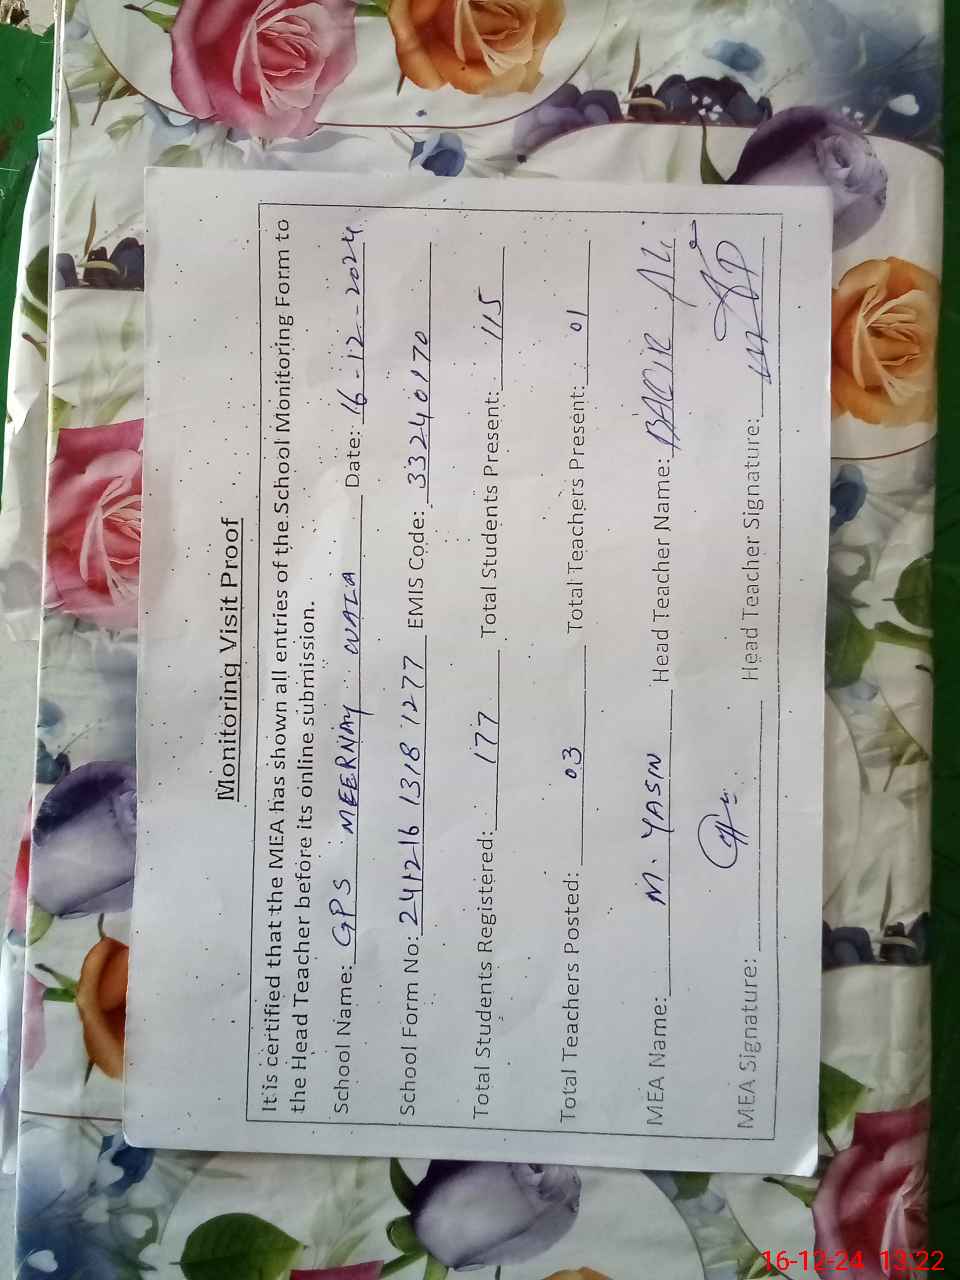 Monitoring Visit Proof
It is certified that the MEA has shown all entries of the School Monitoring Form to
the Head Teacher before its online submission.
School Name: GPS MEERNAY WALA Date: 16-12-2024
School Form No: 241216 1318 1277 EMIS Code: 33240170
Total Students Registered: 177 Total Students Present: 115
Total Teachers Posted: 03 Total Teachers Present: 01
MEA Name: M. YASIN Head Teacher Name: ALi
MEA Signature: Head Teacher Signature:
16-12-24 13:22